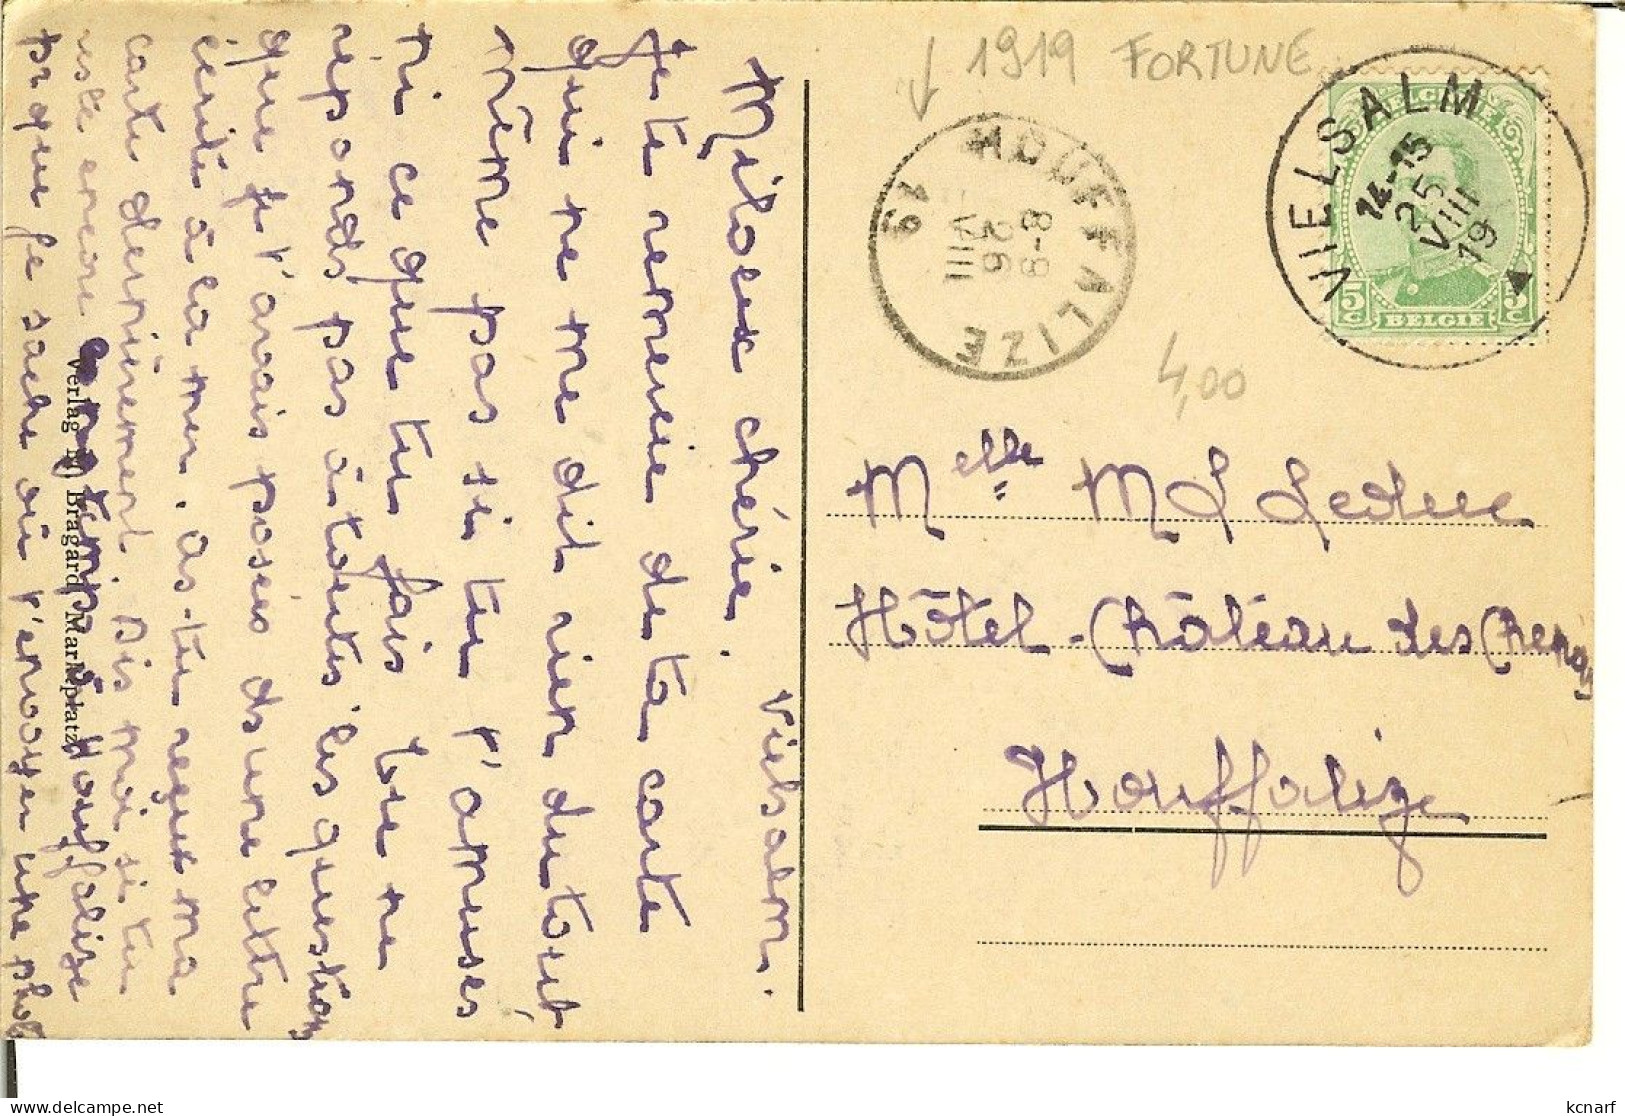 1919 FORTUNE
VIELSALM
14-15
25
VIII
19
BELGIQUE
5c 5c
BELGIE
HOUFFALIZE
8-9
26
VIII
19
4,00
Melle M L Leduc
Hôtel-Château des
Houffalize
Vielsalm.
chérie.
Je te remercie de ta carte
qui ne me dit rien du tout
même pas si tu t'amuses
ni ce que tu fais tu ne
réponds pas à toutes les questions
que je t'avais posées dans une lettre
écrite à la mer. as-tu reçue ma
carte dernièrement. Dis moi si tu
reste encore temps à Houffalize
pr que je sache où t'envoyer une photo
Verlag Bragard Marktplatz
kcnarf
delcampe.net